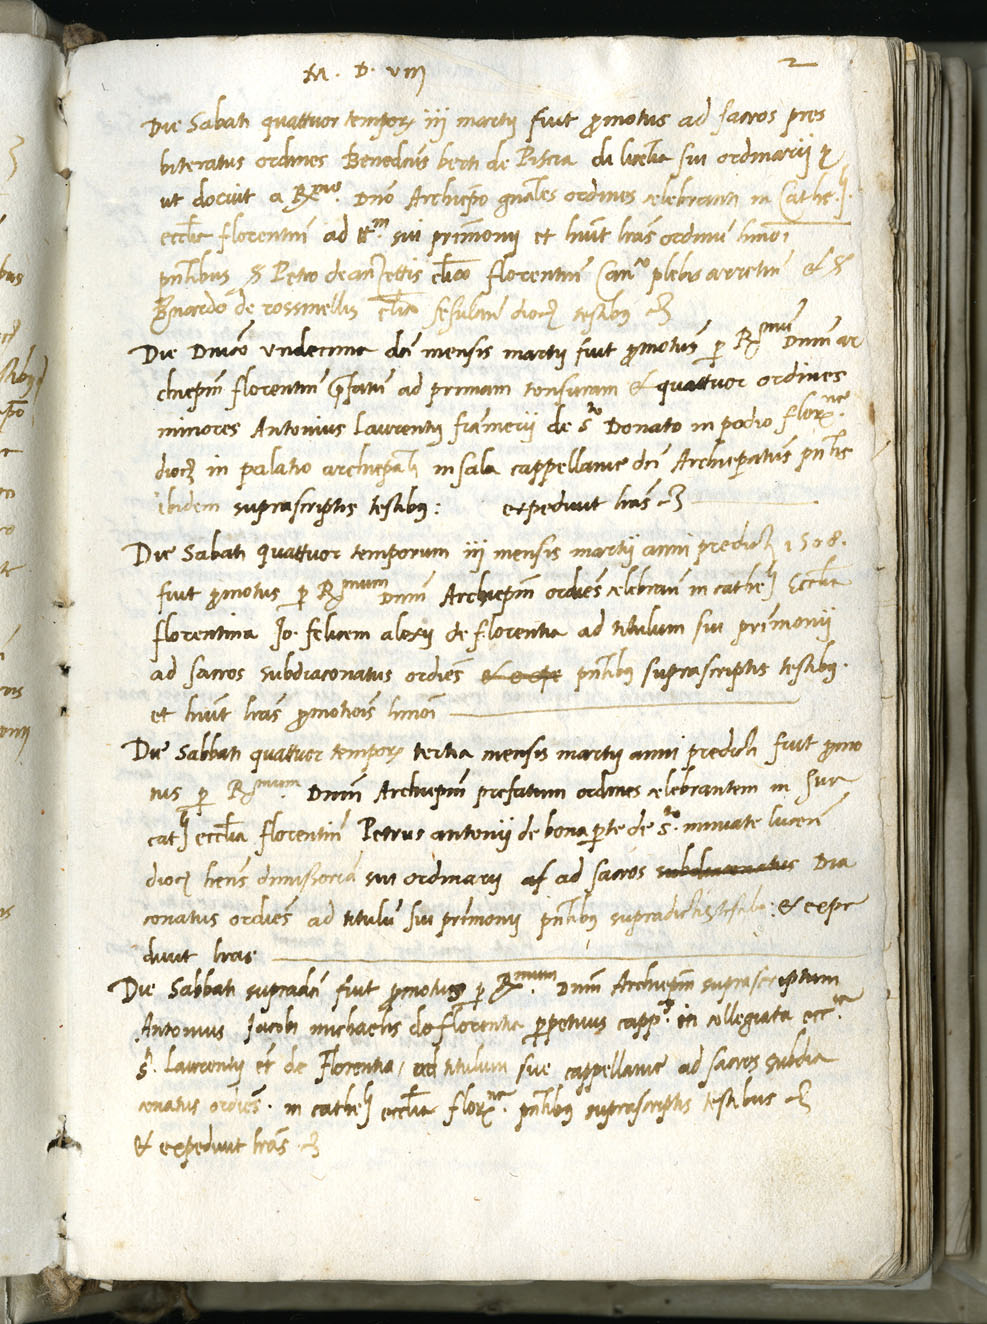 M. D. VIII
2
Die Sabati quattuor tempor iij martij fuit promotus ad sacros pres
biteratus ordines Benedcus berti de Piscia de licentia sui ordinarii
ut docuit a Rmo. Dno Archiepo gnales ordines celebranti in Cathe.
ecclia florentin ad ttm. sui primonij et huit lras ordinu hmoi
pntibus S Petro de clico florentin Canco plebis arretin & S
Bnardo de rossinellis clico fesulan dioc testibus &
Die Dnico undecima dci mensis martij fuit promotus p Rmu Dnum ar
chiepm florentin prefatu ad primam tonsuram & quattuor ordines
minores Antonius Laurentij de sto Donato in podio florne.
dioc in palatio archiepali in sala cappellanie dci Archiepatus pntis
ibidem suprascriptis testibus: expediuit lras &
Die Sabati quattuor temporum iij mensis martij anni predicti 1508.
fuit promotus p Rmum Dnum Archiepm ordies celebran in catheli Ecclia
florentina Jo. felicem alexij de florentia ad titulum sui primonij
ad sacros subdiaconatus ordies pntibus suprascriptis testibus.
et huit lras promotiois hmoi
Die Sabbati quattuor tempor tertia mensis martij anni predicti fuit promo
tus p Rmum. Dnum Archiepm prefatum ordines celebrantem in sua
catli ecclia florentin Petrus antonij de bona parte de sto. miniate lucen
dioc hens dimissoria sui ordinarij ad sacros subdiaconatus Dia
conatus ordies ad titulu sui primonij pntibus supradictis testibus: & expe
diuit lras
Die Sabbati supradci fuit promotus p Rmum. Dnum Archiepm suprascriptum
Antonius Jacobi michaelis de florentia perpetuus capp. in collegiata ecc.
s. Laurentij de Florentia, ad titulum sue cappellanie ad sacros subdia
conatus ordies. in catheli ecclia florne. pntibus suprascriptis testibus &
& expediuit lras &